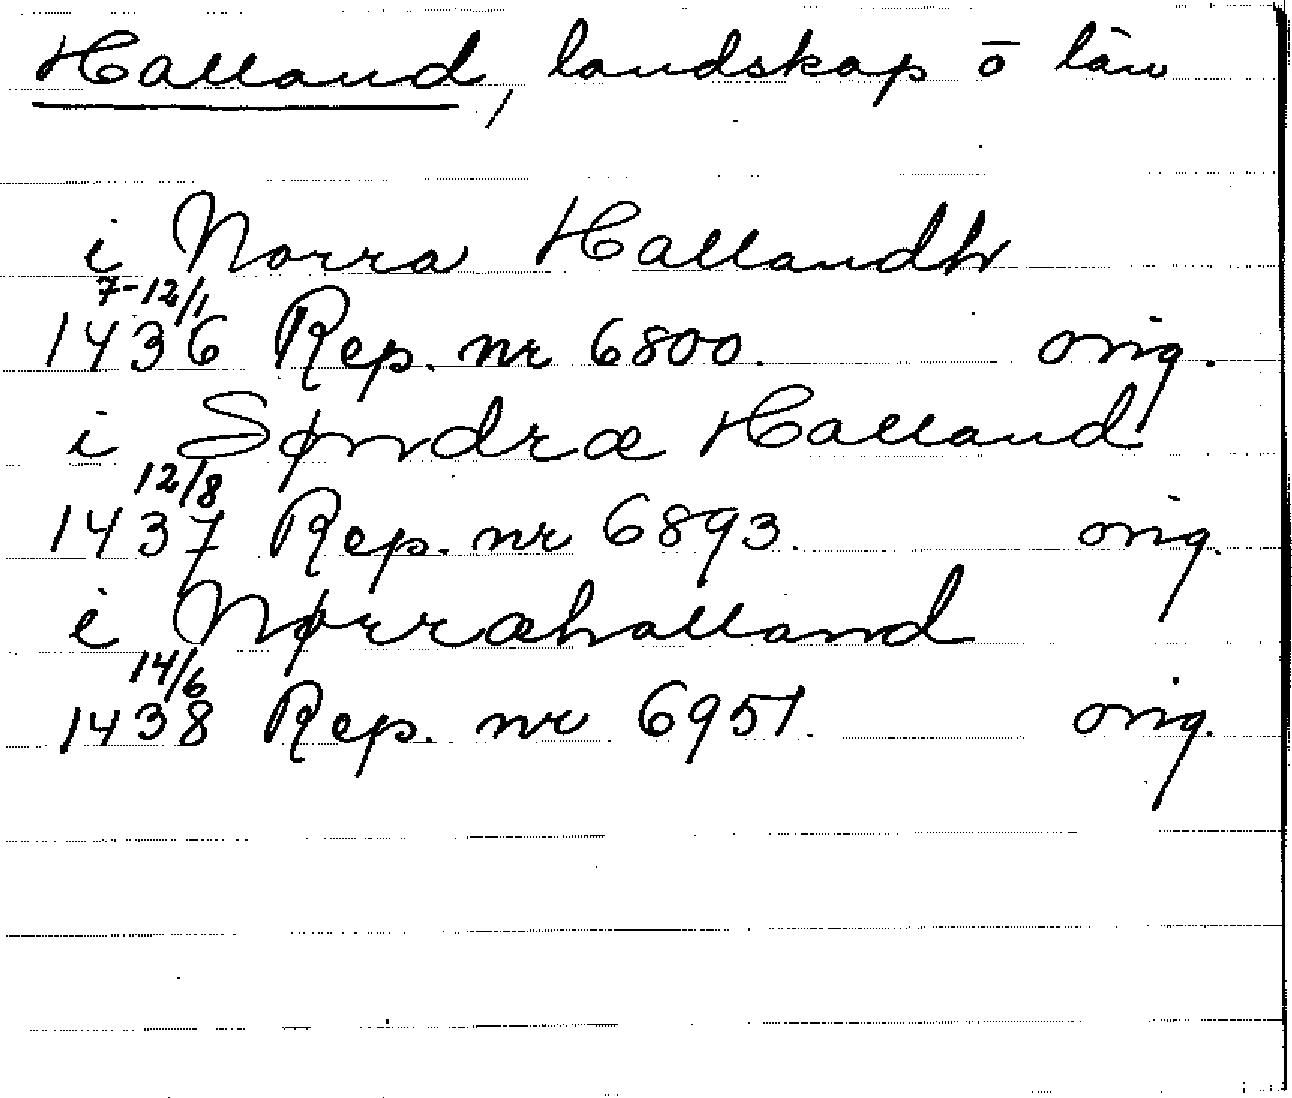 Halland, landskap ō län
i Norra Hallandh
7-12/1
1436 Rep. nr 6800. orig.
i Søndræ Halland
12/8
1437 Rep. nr 6893. orig.
i Nørræhalland
14/6
1438 Rep. nr 6951. orig.